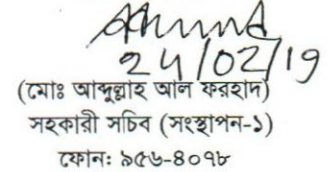 24/02/19
(মোঃ আব্দুল্লাহ আল ফরহাদ)
সহকারী সচিব (সংস্থাপন-১)
ফোন: ৯৫৬-৪০৭৮